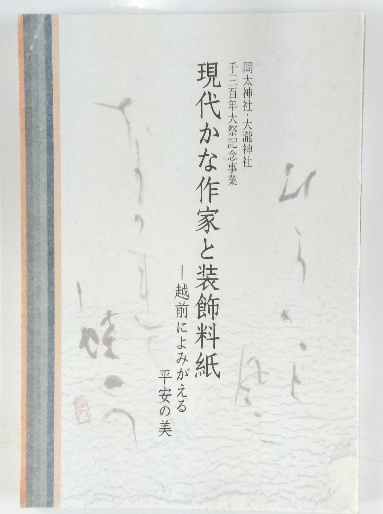 岡太神社・大瀧神社
千三百年大祭記念事業
現代かな作家と装飾料紙
―越前によみがえる
平安の美